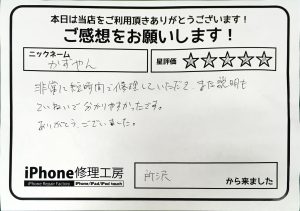 本日は当店をご利用頂きありがとうございます！
ご感想をお願いします！
ニックネーム
かずやん
星評価 ☆☆☆☆☆
非常に短時間で修理していただき、また説明も
ていねいで分かりやすかったです。
ありがとうございました。
iPhone修理工房
iPhone Repair Factory iPhone/iPad/iPod touch
所沢 から来ました